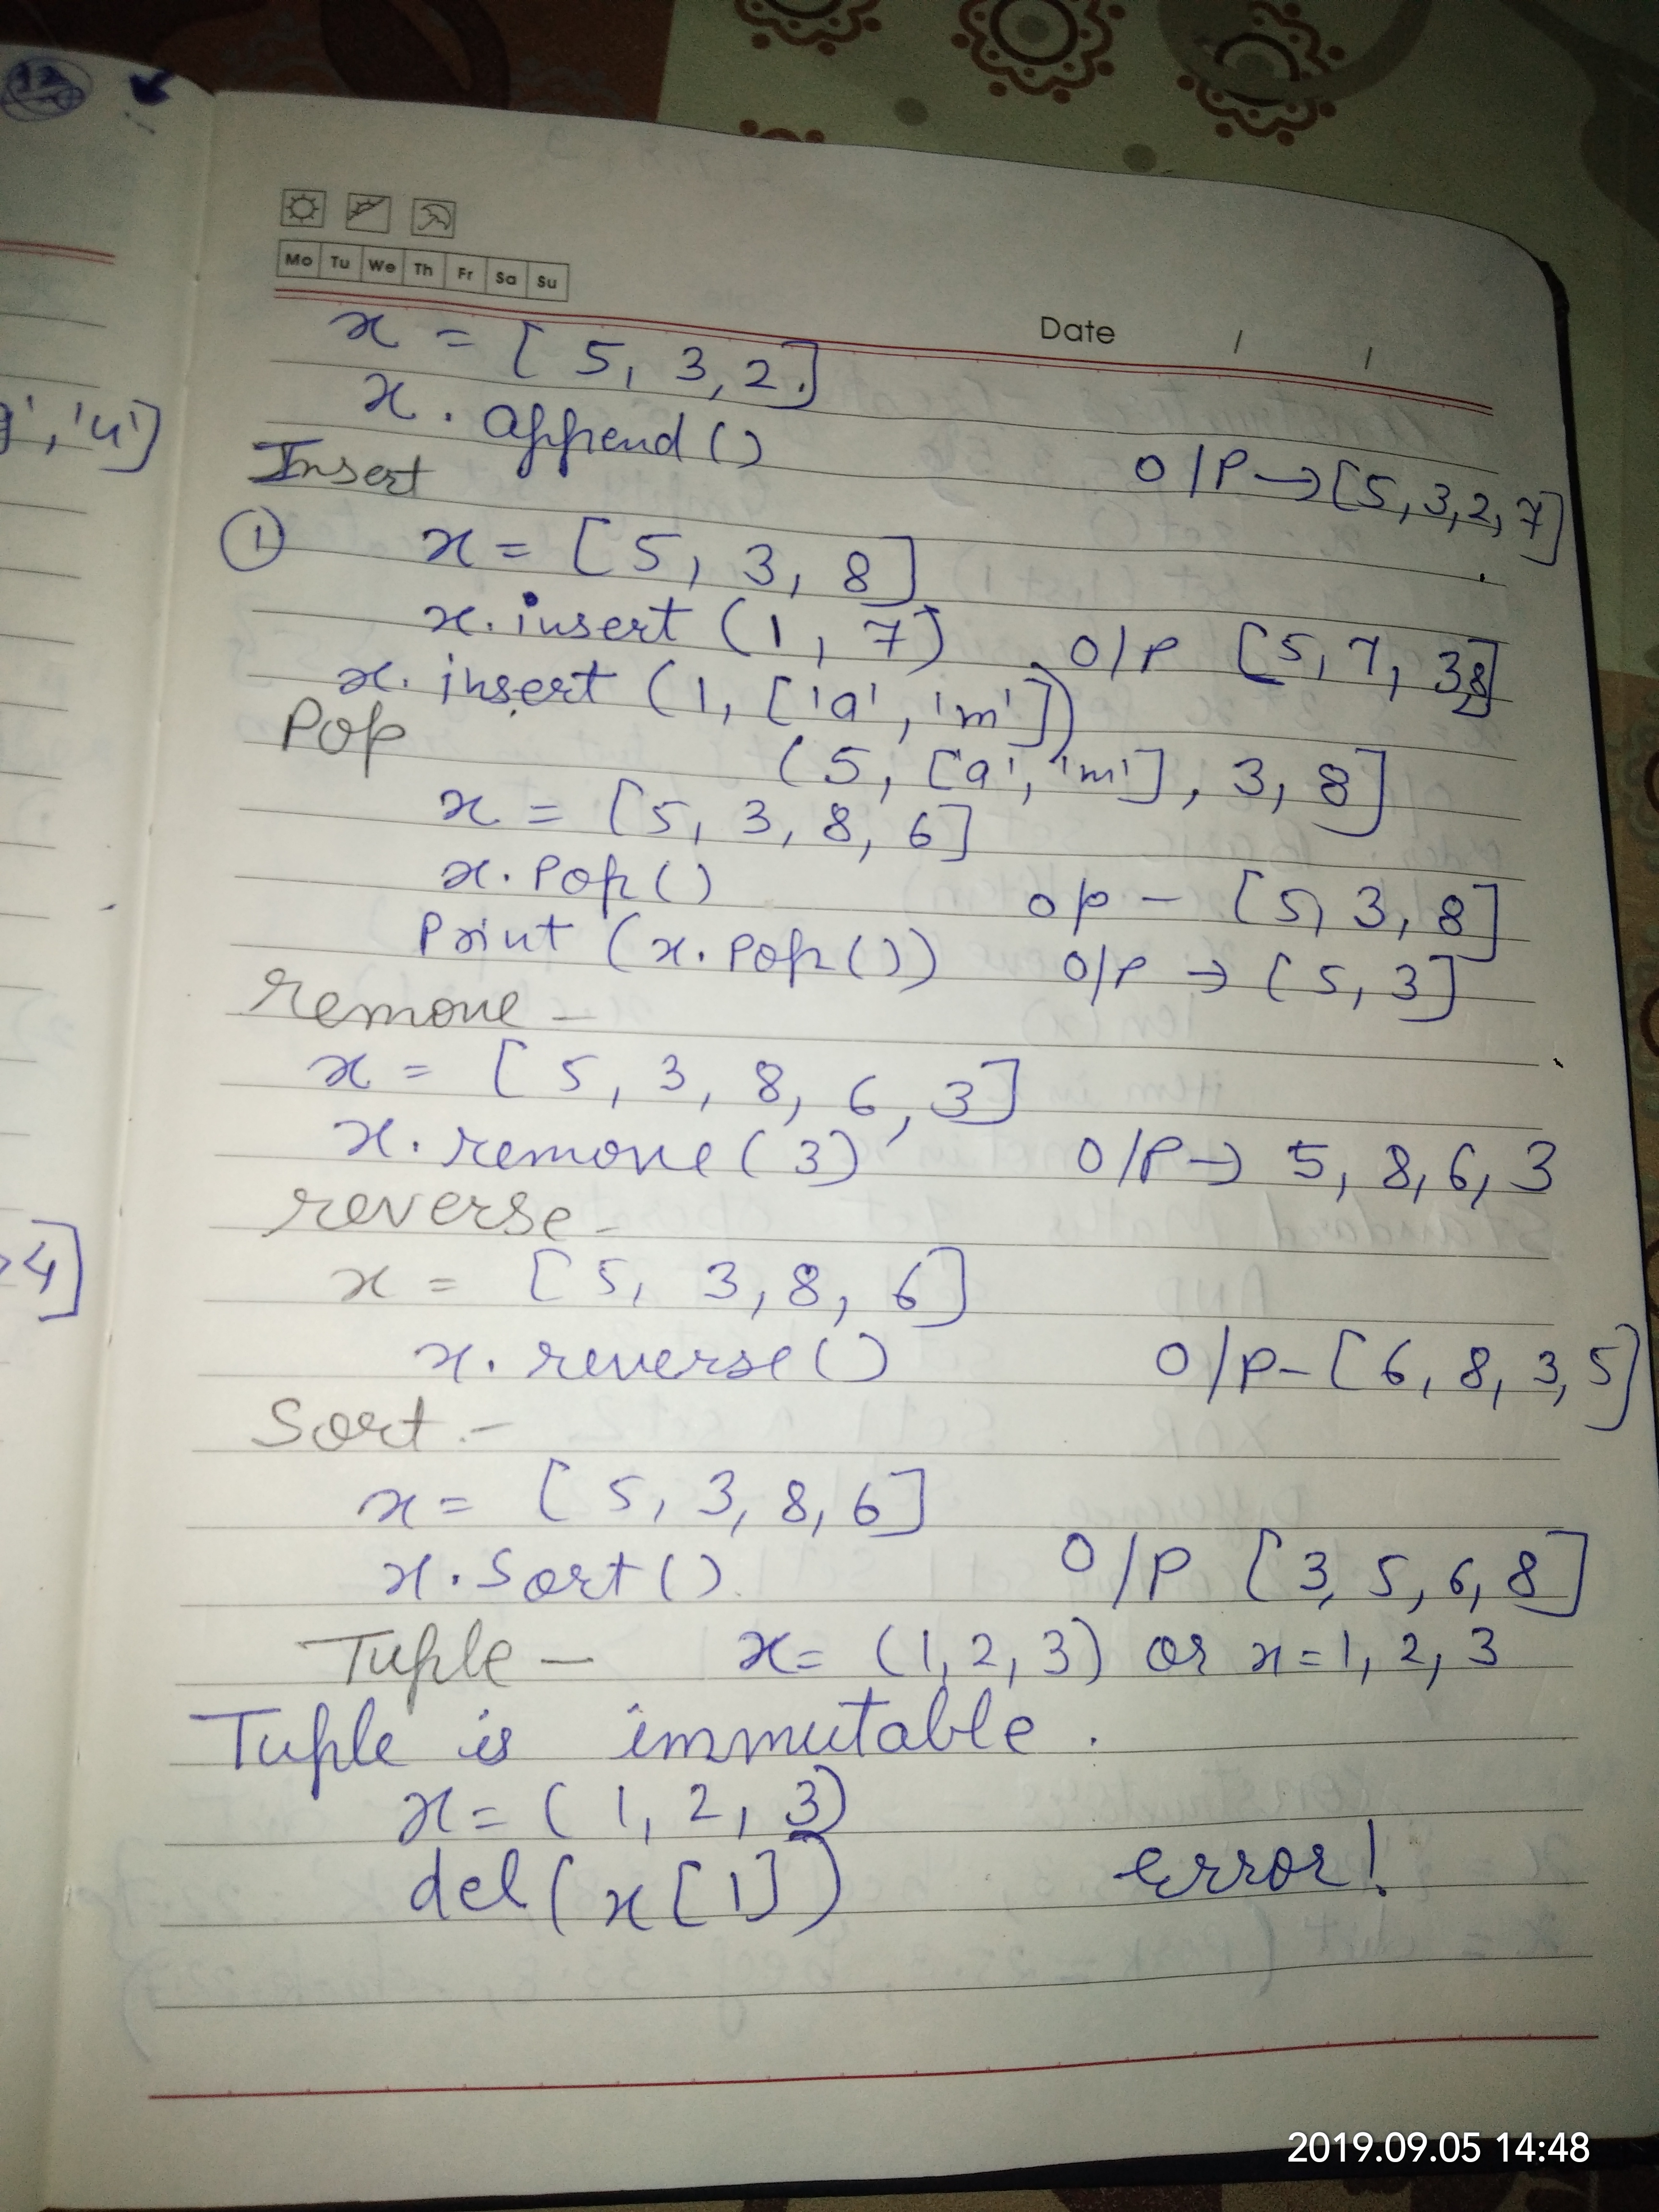 Mo Tu We Th Fr Sa Su
Date / /
x = [ 5, 3, 2.]
x. append ()
O/P → [5, 3, 2, 7]
Insert
① x = [ 5, 3, 8 ]
x. insert (1, 7) O/P [5, 7, 3,8]
x. insert (1, ['a', 'm'])
Pop
(5, [a', 'm'], 3, 8]
x = [5, 3, 8, 6]
x. Pop() op - [5, 3, 8]
Print (x. Pop()) O/P → [5, 3]
remove -
x = [ 5, 3, 8, 6, 3]
x. remove (3) O/P → 5, 8, 6, 3
reverse -
x = [5, 3, 8, 6]
x. reverse () O/P - [6, 8, 3, 5]
Sort -
x = [ 5, 3, 8, 6]
x. Sort () O/P [3, 5, 6, 8]
Tuple - x = (1, 2, 3) or x = 1, 2, 3
Tuple is immutable.
x = (1, 2, 3)
del (x[1]) error!
'4']
4]
2019.09.05 14:48